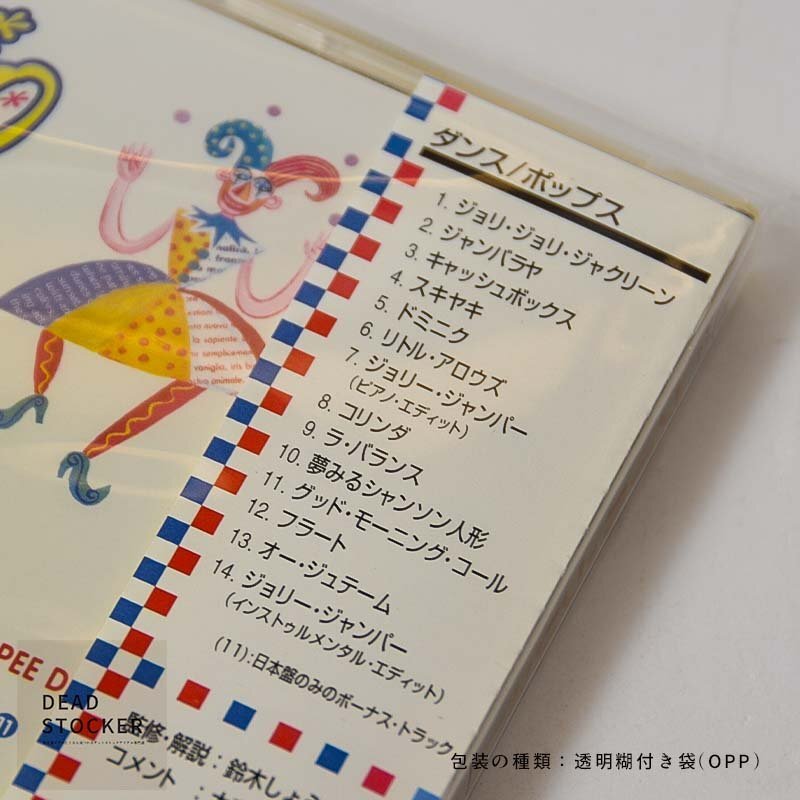 ダンス/ポップス
1. ジョリ・ジョリ・ジャクリーン
2. ジャンバラヤ
3. キャッシュボックス
4. スキヤキ
5. ドミニク
6. リトル・アロウズ
7. ジョリー・ジャンパー
(ピアノ・エディット)
8. コリンダ
9. ラ・バランス
10. 夢みるシャンソン人形
11. グッド・モーニング・コール
12. フラート
13. オー・ジュテーム
14. ジョリー・ジャンパー
(インストゥルメンタル・エディット)
(11):日本盤のみのボーナス・トラック
監修・解説:鈴木しょう
コメント :
PEE D
11
DEAD
STOCKER
包装の種類:透明糊付き袋(OPP)